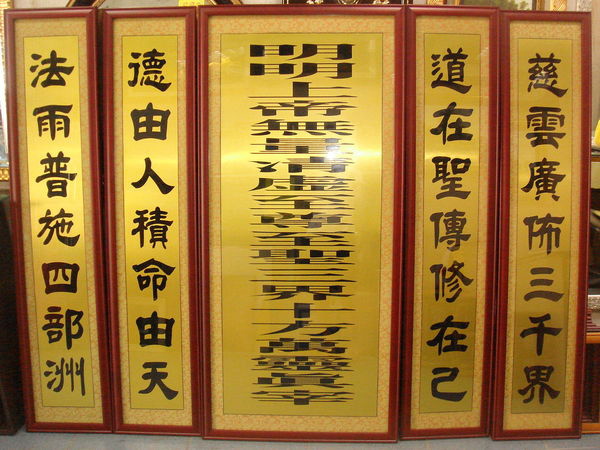 慈雲廣佈三千界
道在聖傳修在己
明明上帝無量清虛至尊至聖三界十方萬靈眞宰
德由人積命由天
法雨普施四部洲